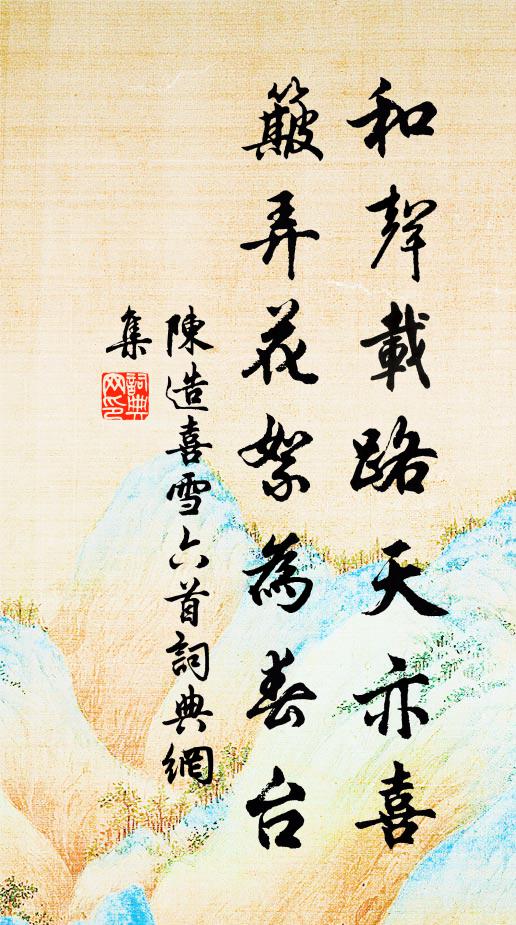 和聲載路天亦喜
簸弄花絮為春台
陳造喜雪六首詞典網
集
詞典
网印